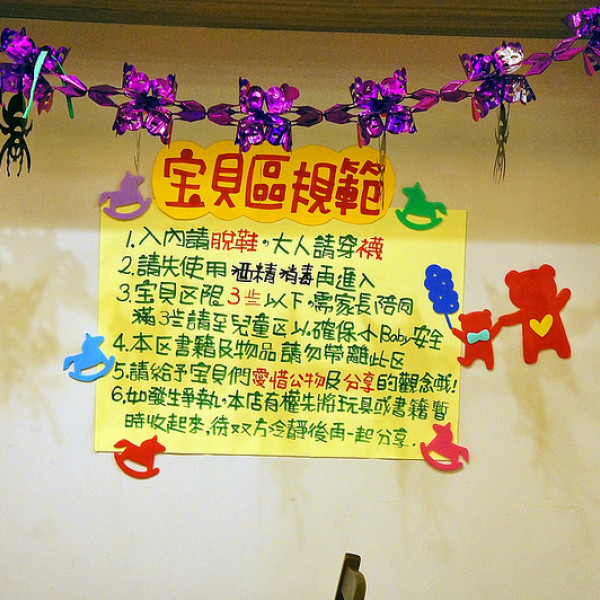 宝貝區規範
1.入內請脫鞋。大人請穿襪
2.請先使用酒精消毒再進入
3.宝貝区限3岁以下,需家長陪同
滿3岁請至兒童区以確保小Baby安全
4.本区書籍及物品請勿帶離此区
5.請給予宝貝們愛惜公物及分享的觀念哦!
6.如發生爭執,本店有權先將玩具或書籍暫
時收起來,待双方冷靜後再一起分享.